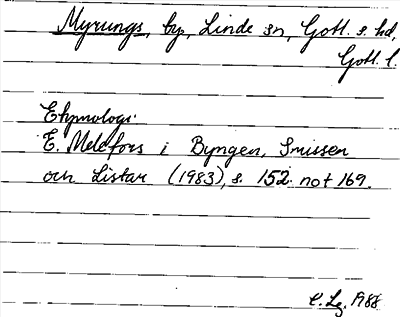 Myrungs, by, Linde sn, Gotl. s. hd,
Gotl. l.
Etymologi:
E. Melefors i Byngen, Snissen
och Listar (1983), s. 152 not 169.
C. Lg. 1988